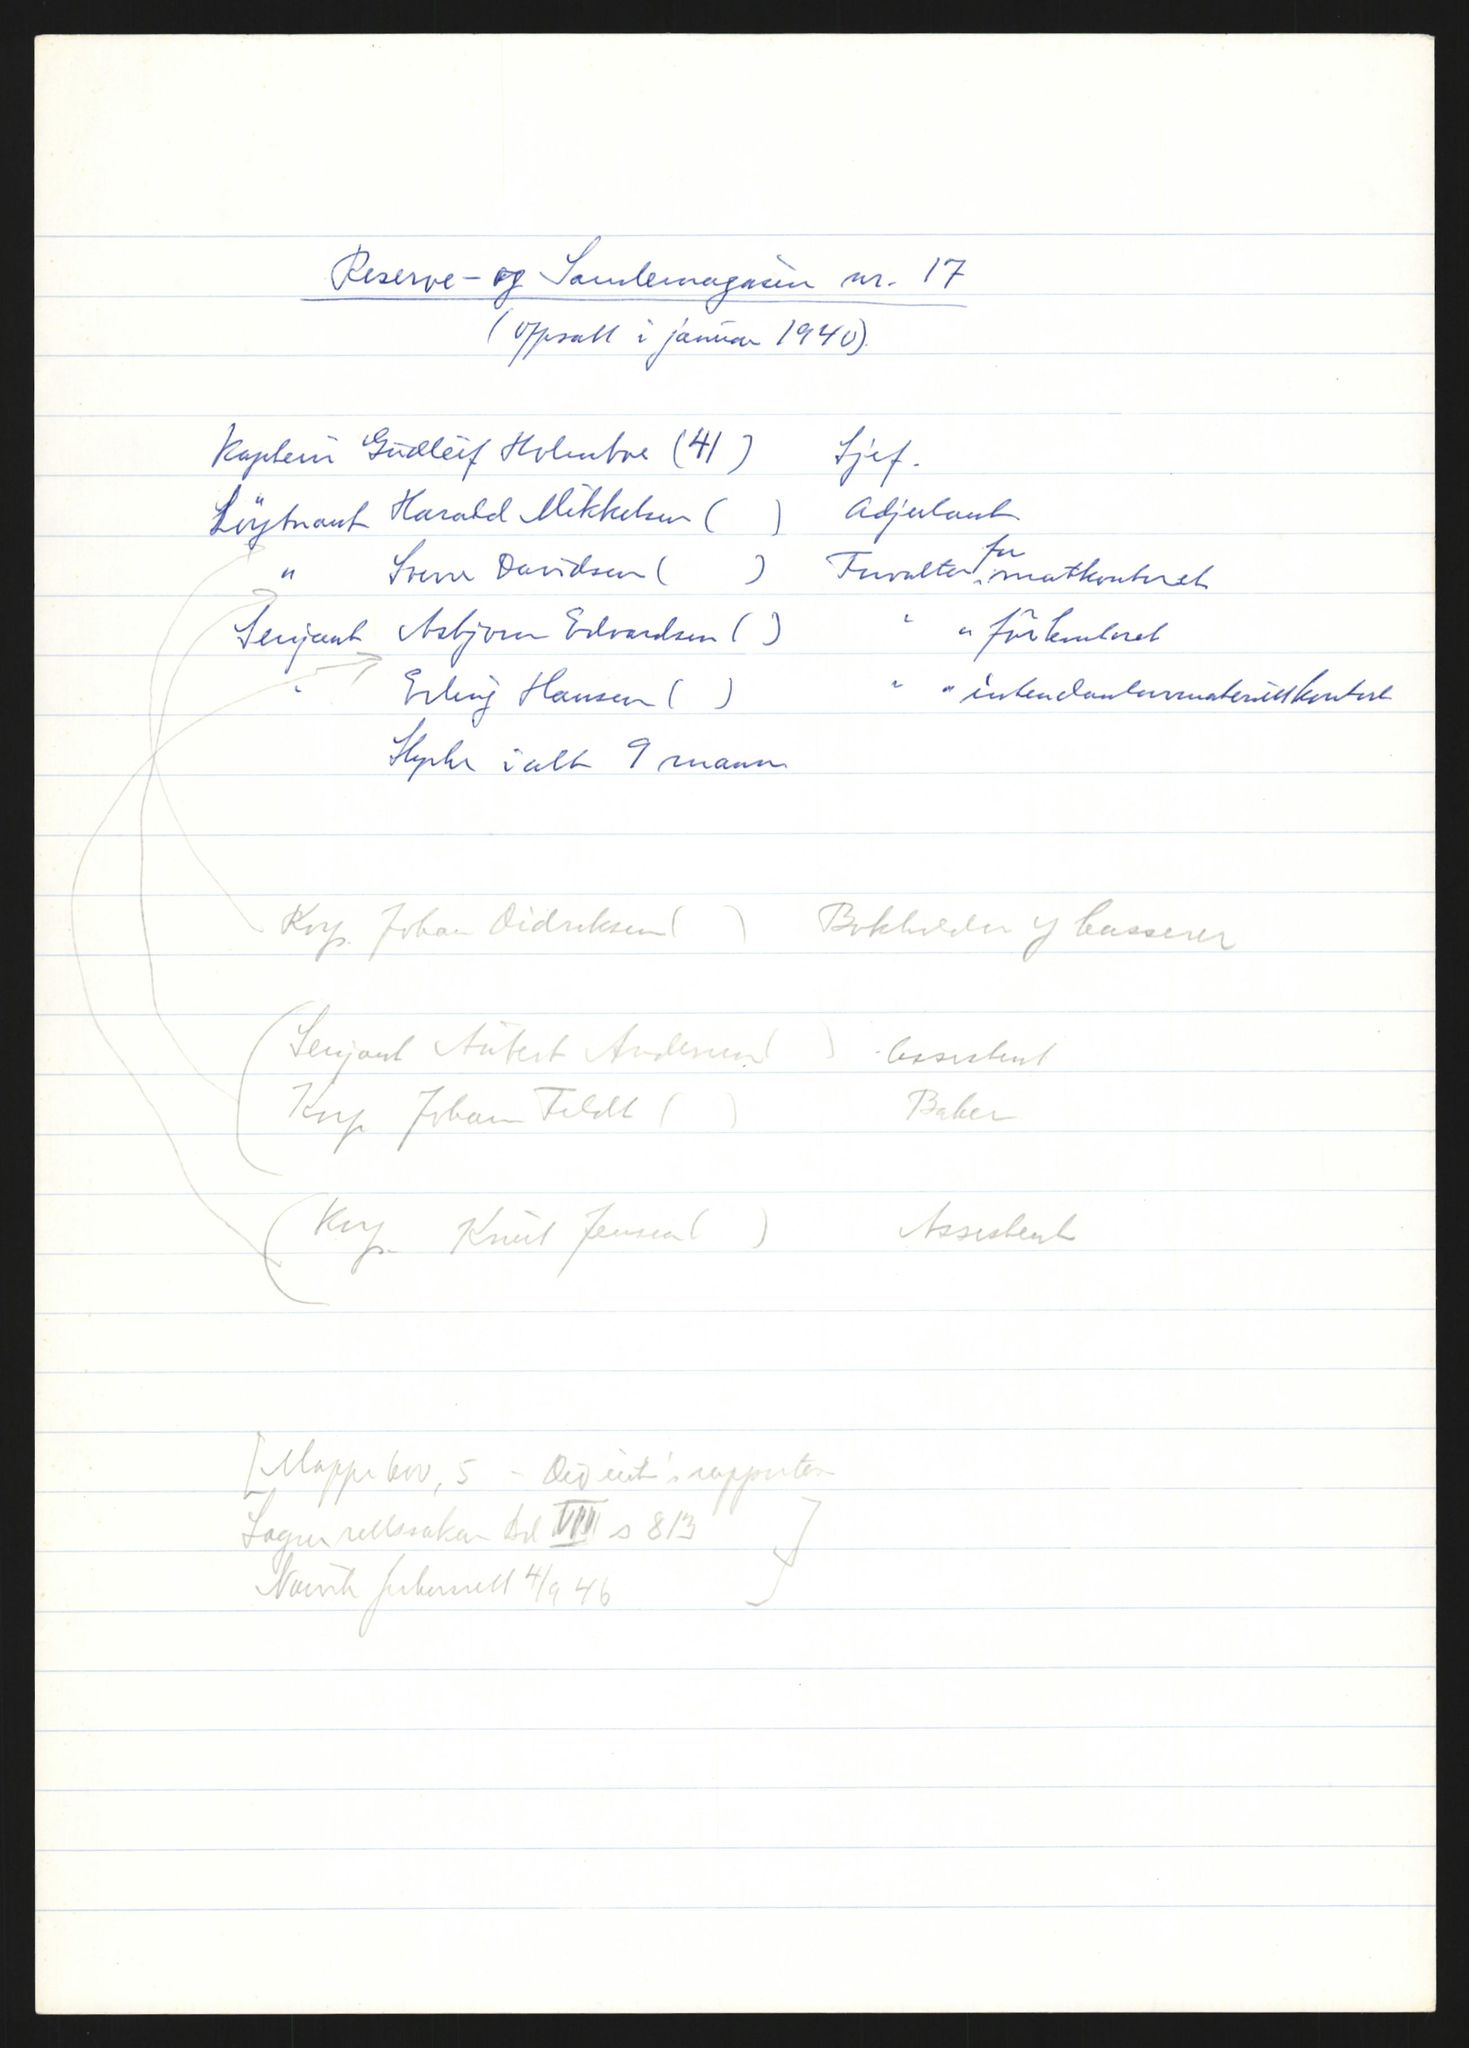 Reserve- og Samlemagasin nr. 17
(Oppsatt i januar 1940)
Kaptein Gudleif Holmboe (41) Sjef.
Löytnant Harald Mikkelsen ( ) Adjutant
" Sverre Davidsen ( ) Forvalter for matkontoret
Sersjant Asbjørn Edvardsen ( ) " " fôrkontoret
" Erling Hansen ( ) " " intendanturmateriellkontoret
Styrke i alt 9 mann
Korp. Johan Didriksen ( ) Bokholder og kasserer
Sersjant Autert Andersen ( ) Assistent
Korp. Johan Feldt ( ) Baker
Korp. Knut Jensen ( ) Assistent
[Mappe 600, 5 - rapporter
Lagerrettssaken bd VIII s 813
Narvik 4/9 46]